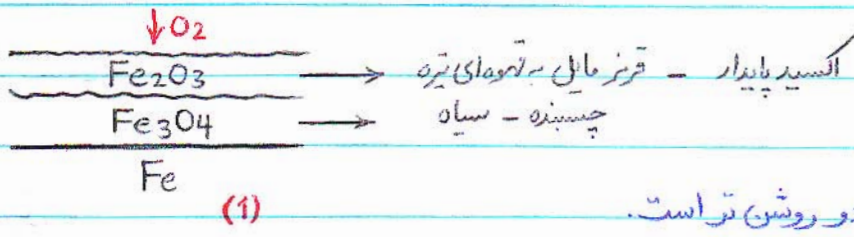 O2
Fe2O3 → اکسید پایدار - قرمز مایل به قهوه‌ای تیره
Fe3O4 → چسبنده - سیاه
Fe
(1)
و روشن تر است.